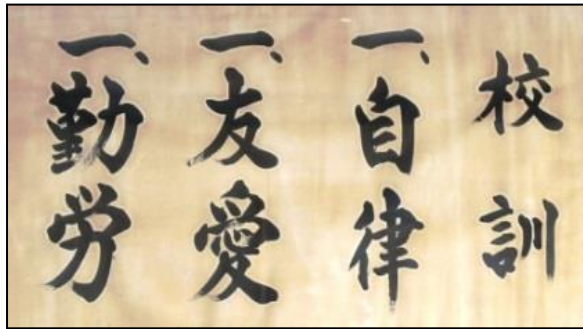 校訓
一、自律
一、友愛
一、勤労